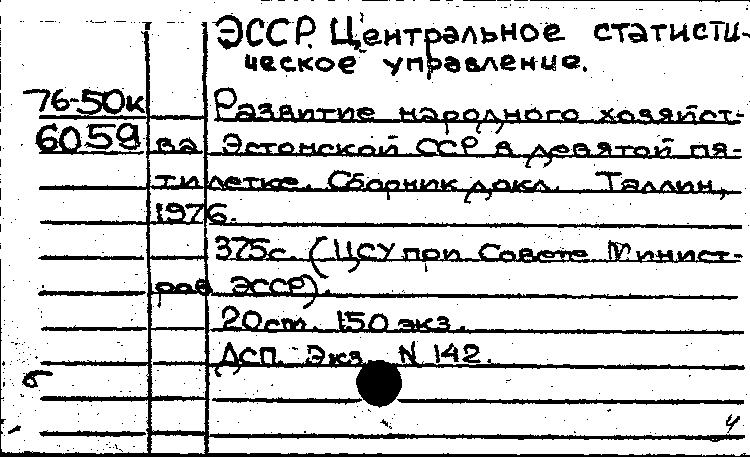 ЭССР. Центральное статисти-
ческое управление.
76-50к
6059
Развитие народного хозяйст-
ва Эстонской ССР в девятой пя-
тилетке. Сборник докл. Таллин,
1976.
375с. (ЦСУ при Совете Минист-
ров ЭССР).
20см. 150 экз.
ДСП. Экз. N 142.
б
ч